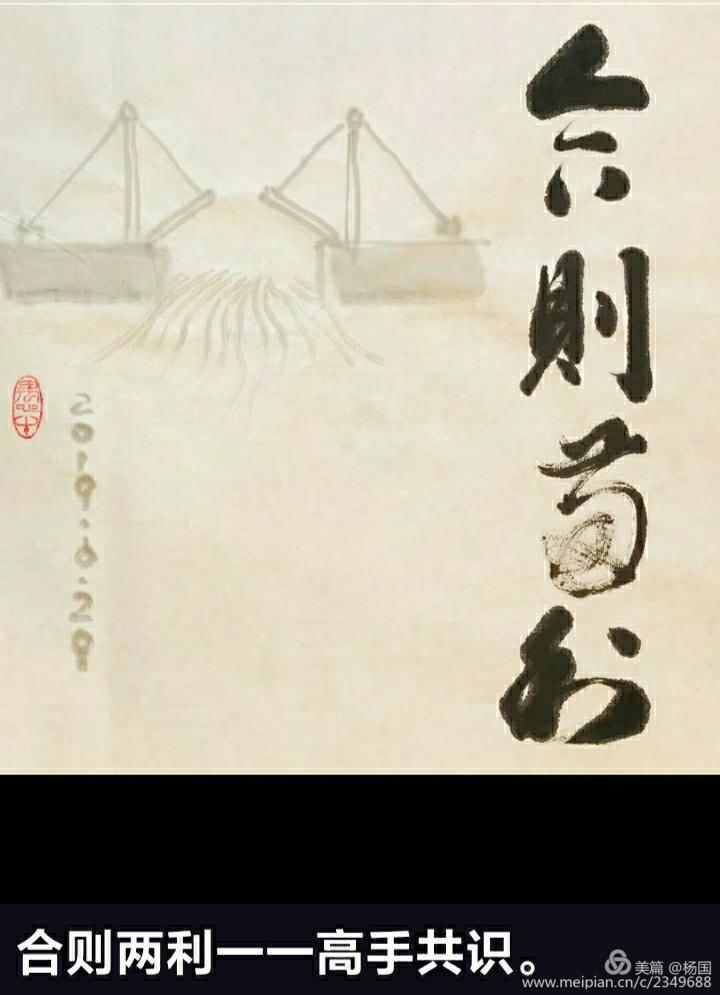 合則兩利
2019.6.29
合则两利一一高手共识。
美篇 @杨国
www.meipian.cn/c/2349688